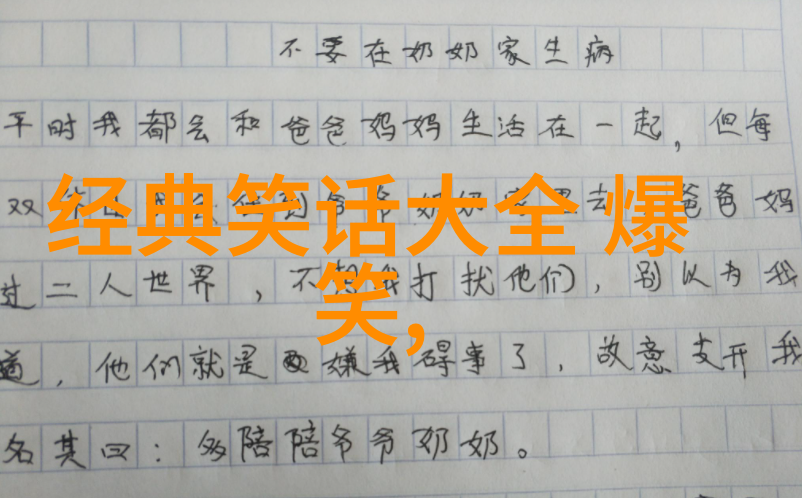 不要在奶奶家生病
平时我都会和爸爸妈妈生活在一起，但每
双 到爷爷奶奶家里去 爸爸妈
经典笑话大全 爆
笑,
过二人世界，不想我打扰他们，别以为我
道，他们就是嫌我碍事了，故意支开我
名其曰：多陪陪爷爷奶奶。